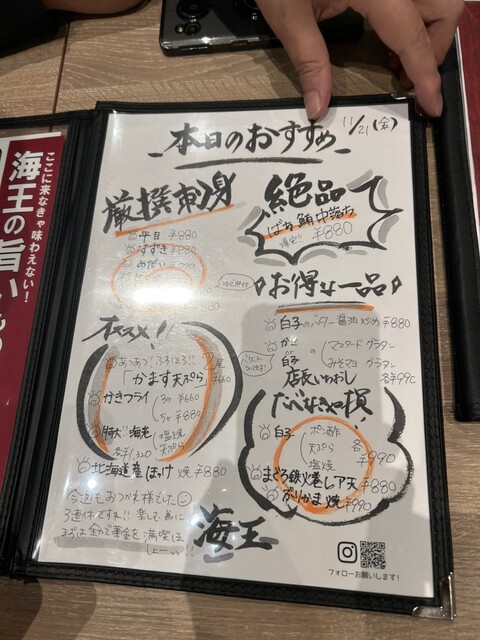 ここに来なきゃ味わえない!
海王の旨い
11/21(金)
本日のおすすめ
厳撰刺身
平目 ¥880
すずき ¥880
めだい
絶品
ばち鮪中落ち
¥880
お得な一品
白子のバター醤油炒め ¥880
かに
白子
の
マスタードグラタン
みそマヨグラタン
各¥990
オススメ!!
あつあつ!ふわほろ!!
「かます天ぷら ¥660
かきフライ
3ヶ ¥660
5ヶ ¥880
特大海老
塩焼
天ぷら
北海道産ほっけ焼 ¥880
店長いわく
たべなきゃ損!
白子
ポン酢
天ぷら
塩焼
各
¥990
まぐろ鉄火巻レア天 ¥880
ぶりかま焼 ¥990
今週もおつかれ様でした
3連休ですね!!楽しむ為に
まずは金で華金を満喫
しよーっ!!
海王
フォローお願いします!